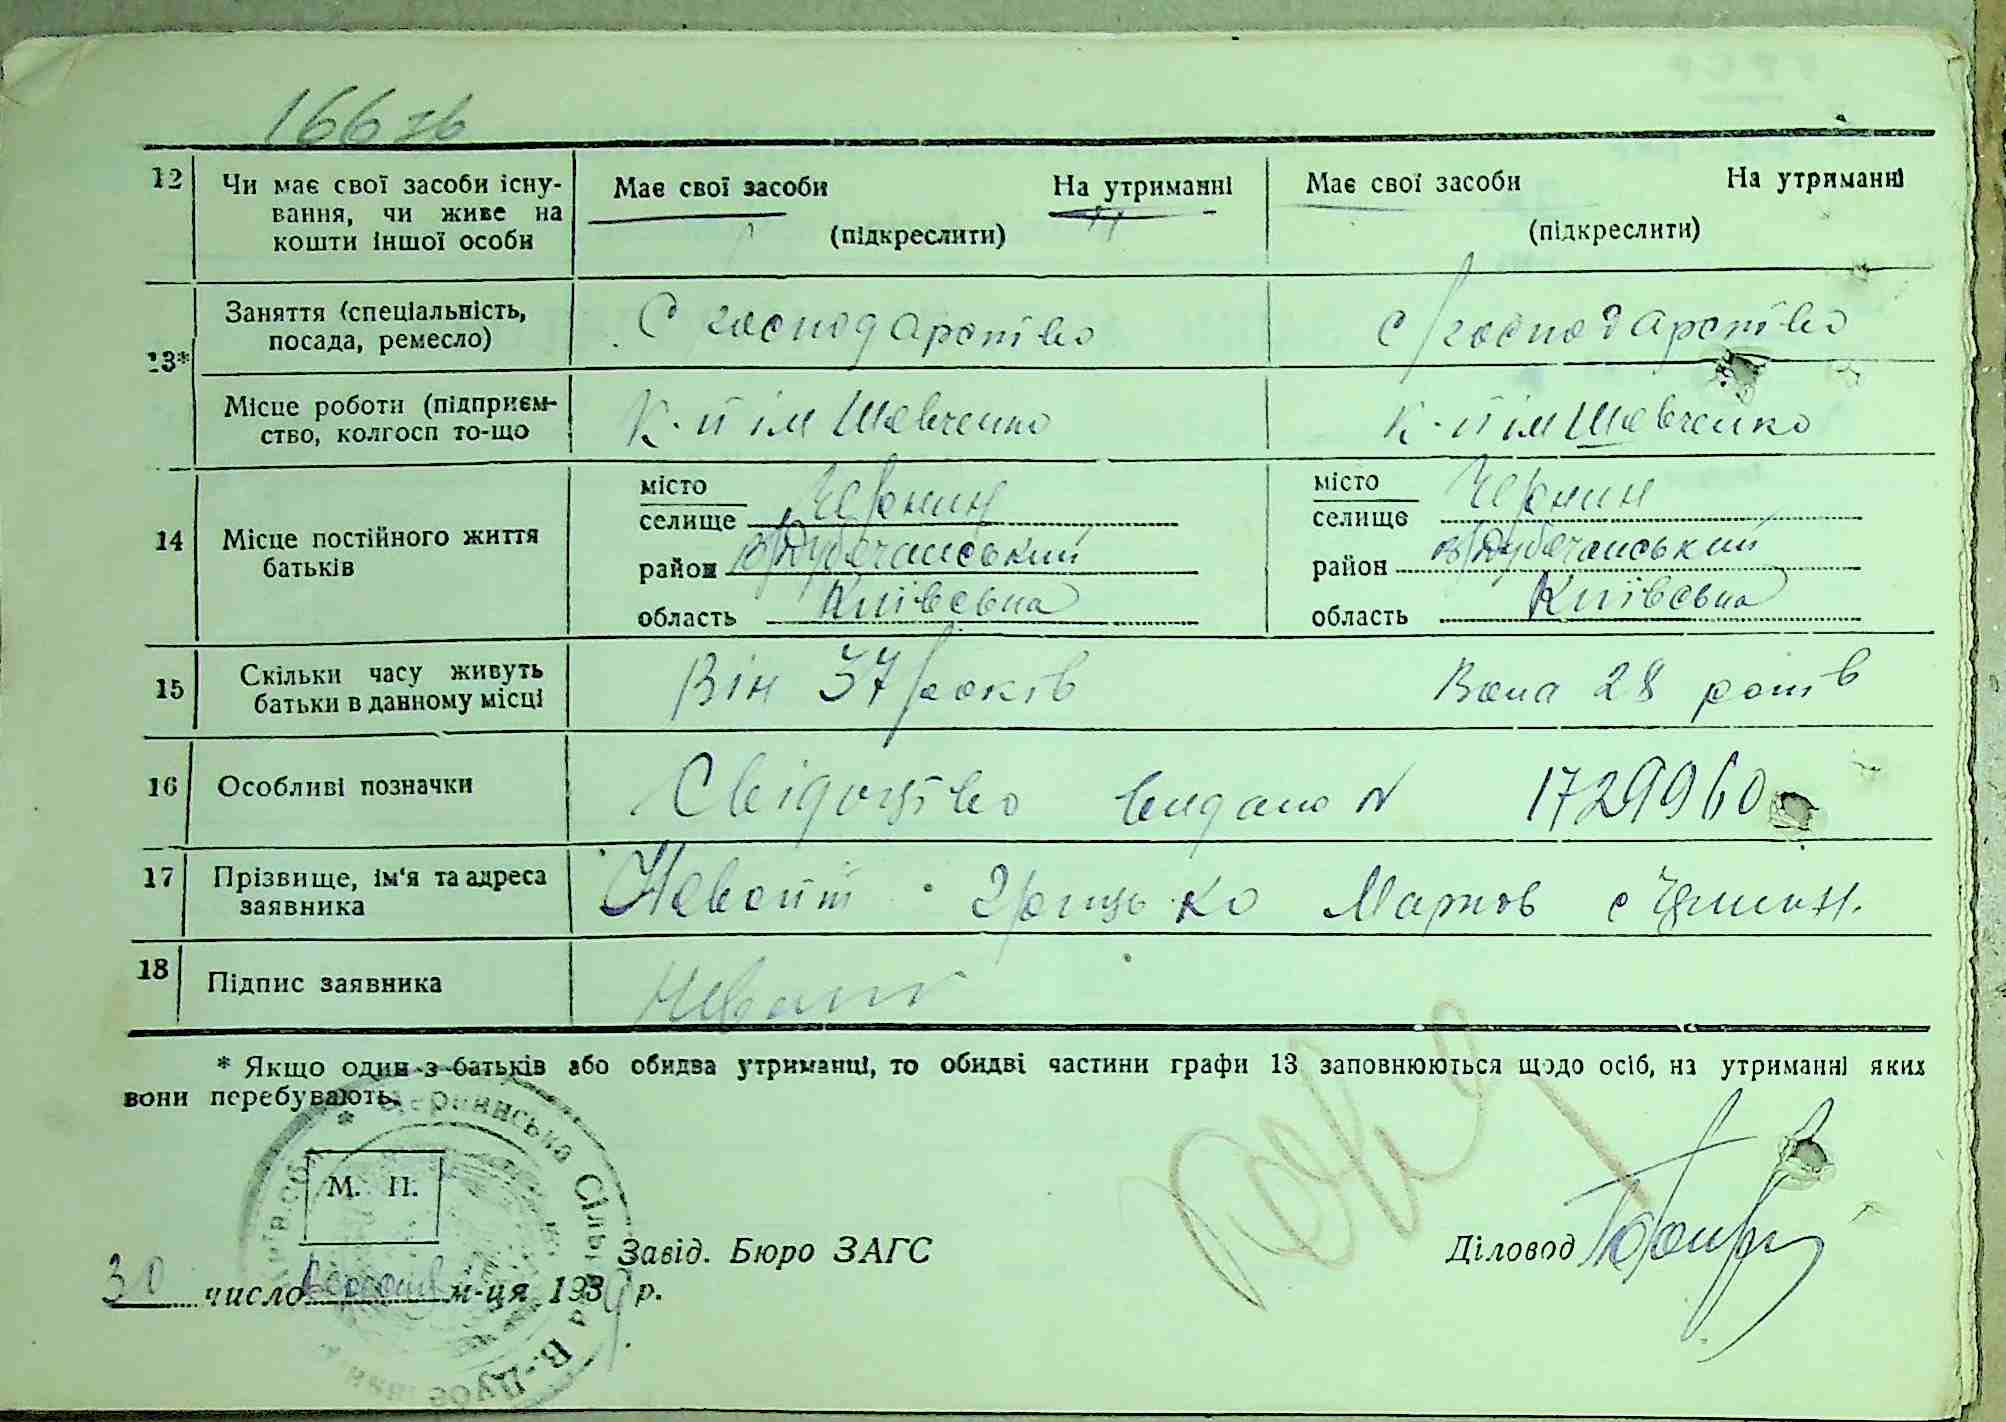 166 зв
12 Чи має свої засоби існу-
вання, чи живе на
кошти іншої особи
Має свої засоби На утриманні
(підкреслити)
Має свої засоби На утриманні
(підкреслити)
13* Заняття (спеціальність,
посада, ремесло)
С господарство
с/господарство
Місце роботи (підприєм-
ство, колгосп то-що
К-п ім Шевченко
К-п ім Шевченко
14 Місце постійного життя
батьків
місто
селище Чернин
район В/Дубечанський
область Київська
місто
селище Чернин
район В/Дубечанський
область Київська
15 Скільки часу живуть
батьки в данному місці
Він 37 років Вона 28 років
16 Особливі позначки
Свідоцтво видано N 1729960
17 Прізвище, ім'я та адреса
заявника
Грицько Марков с Чернин.
18 Підпис заявника
* Якщо один з батьків або обидва утриманці, то обидві частини графи 13 заповнюються щодо осіб, на утриманні яких
вони перебувають.
Чернинська Сільрада В.-Дуб
М. П.
Завід. Бюро ЗАГС
Діловод
30 число м-ця 193 р.